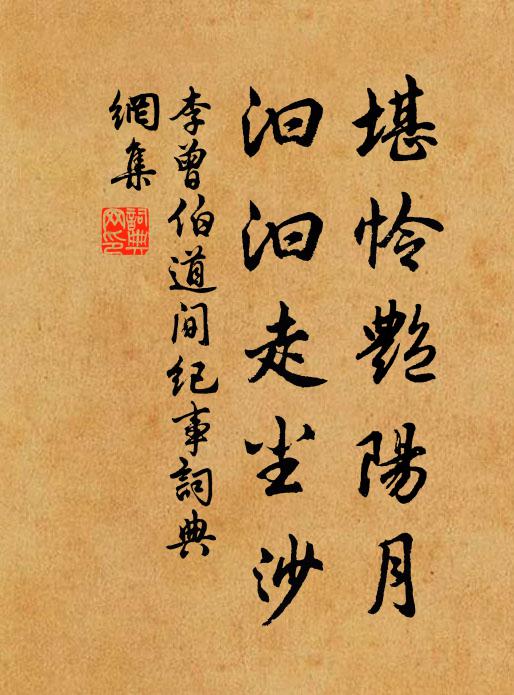 堪怜艷陽月
汩汩走尘沙
李曾伯道间纪事詞典
網集
詞典
网印